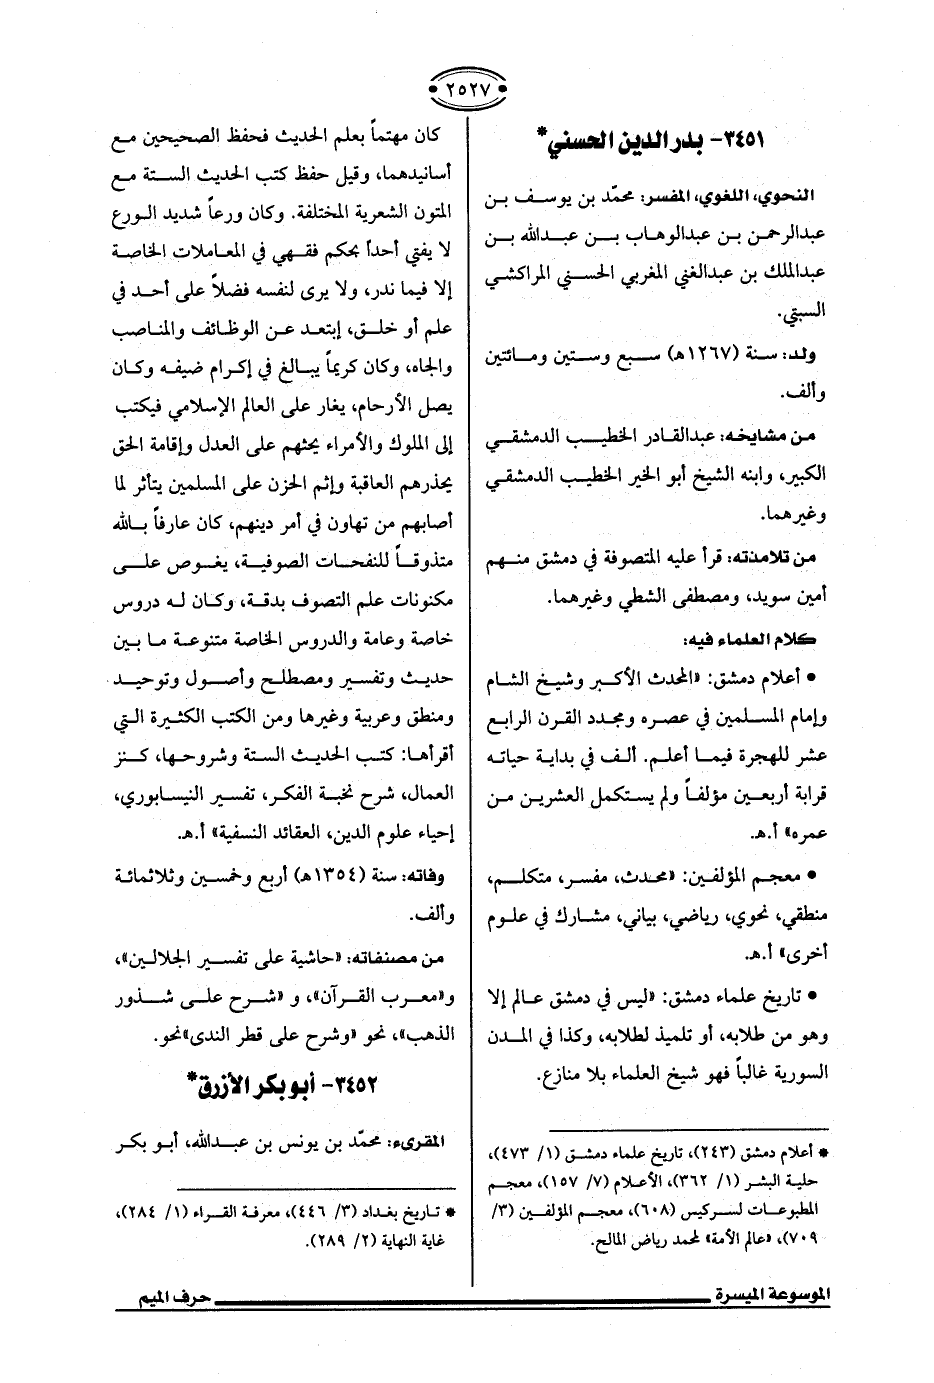 ٢٥٢٧
٣٤٥١- بدر الدين الحسني*
النحوي، اللغوي، المفسر: محمّد بن يوسف بن
عبدالرحمن بن عبدالوهاب بن عبدالله بن
عبدالملك بن عبدالغني المغربي الحسني المراكشي
السبتي.
ولد: سنة (١٢٦٧هـ) سبع وستين ومائتين
وألف.
من مشايخه: عبدالقادر الخطيب الدمشقي
الكبير، وابنه الشيخ أبو الخير الخطيب الدمشقي
وغيرهما.
من تلامذته: قرأ عليه المتصوفة في دمشق منهم
أمين سويد، ومصطفى الشطي وغيرهما.
كلام العلماء فيه:
• أعلام دمشق: «المحدث الأكبر وشيخ الشام
وإمام المسلمين في عصره ومجدد القرن الرابع
عشر للهجرة فيما أعلم. ألف في بداية حياته
قرابة أربعين مؤلفاً ولم يستكمل العشرين من
عمره» أ.هـ.
• معجم المؤلفين: «محدث، مفسر، متكلم،
منطقي، نحوي، رياضي، بياني، مشارك في علوم
أخرى» أ.هـ.
• تاريخ علماء دمشق: «ليس في دمشق عالم إلا
وهو من طلابه، أو تلميذ لطلابه، وكذا في المدن
السورية غالباً فهو شيخ العلماء بلا منازع.
* أعلام دمشق (٢٤٣)، تاريخ علماء دمشق (١/ ٤٧٣)،
حلية البشر (١/ ٣٦٢)، الأعلام (٧/ ١٥٧)، معجم
المطبوعات لسركيس (٦٠٨)، معجم المؤلفين (٣/
٧٠٩)، «عالم الأمة» لمحمد رياض المالح.
كان مهتماً بعلم الحديث فحفظ الصحيحين مع
أسانيدهما، وقيل حفظ كتب الحديث الستة مع
المتون الشعرية المختلفة. وكان ورعاً شديد الورع
لا يفتي أحداً بحكم فقهي في المعاملات الخاصة
إلا فيما ندر، ولا يرى لنفسه فضلاً على أحد في
علم أو خلق، إبتعد عن الوظائف والمناصب
والجاه، وكان كريماً يبالغ في إكرام ضيفه وكان
يصل الأرحام، يغار على العالم الإسلامي فيكتب
إلى الملوك والأمراء يحثهم على العدل وإقامة الحق
يحذرهم العاقبة وإثم الحزن على المسلمين يتأثر لما
أصابهم من تهاون في أمر دينهم، كان عارفاً بالله
متذوقاً للنفحات الصوفية، يغوص على
مكنونات علم التصوف بدقة، وكان له دروس
خاصة وعامة والدروس الخاصة متنوعة ما بين
حديث وتفسير ومصطلح وأصول وتوحيد
ومنطق وعربية وغيرها ومن الكتب الكثيرة التي
أقرأها: كتب الحديث الستة وشروحها، كنز
العمال، شرح نخبة الفكر، تفسير النيسابوري،
إحياء علوم الدين، العقائد النسفية» أ.هـ.
وفاته: سنة (١٣٥٤هـ) أربع وخمسين وثلاثمائة
وألف.
من مصنفاته: «حاشية على تفسير الجلالين»،
و«معرب القرآن»، و «شرح على شذور
الذهب»، نحو «وشرح على قطر الندى»نحو.
٣٤٥٢- أبو بكر الأزرق*
المقرىء: محمّد بن يونس بن عبدالله، أبو بكر
* تاريخ بغداد (٣/ ٤٤٦)، معرفة القراء (١/ ٢٨٤)،
غاية النهاية (٢/ ٢٨٩).
الموسوعة الميسرة
حرف الميم